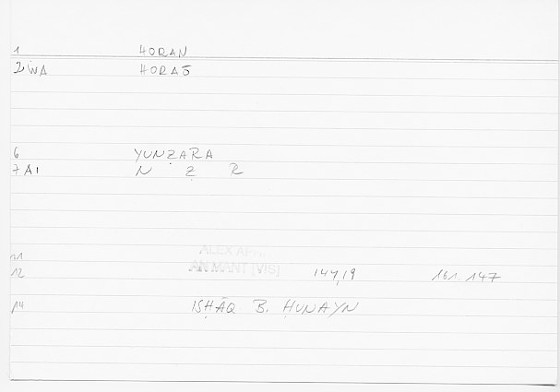 1 HORAN
2 WA HORAŌ
6 YUNẒARA
7 A1 N Ẓ R
11 ALEX
12 AN MANT [VIS] 144,19 161. 147
14 ISḤĀQ B. ḤUNAYN